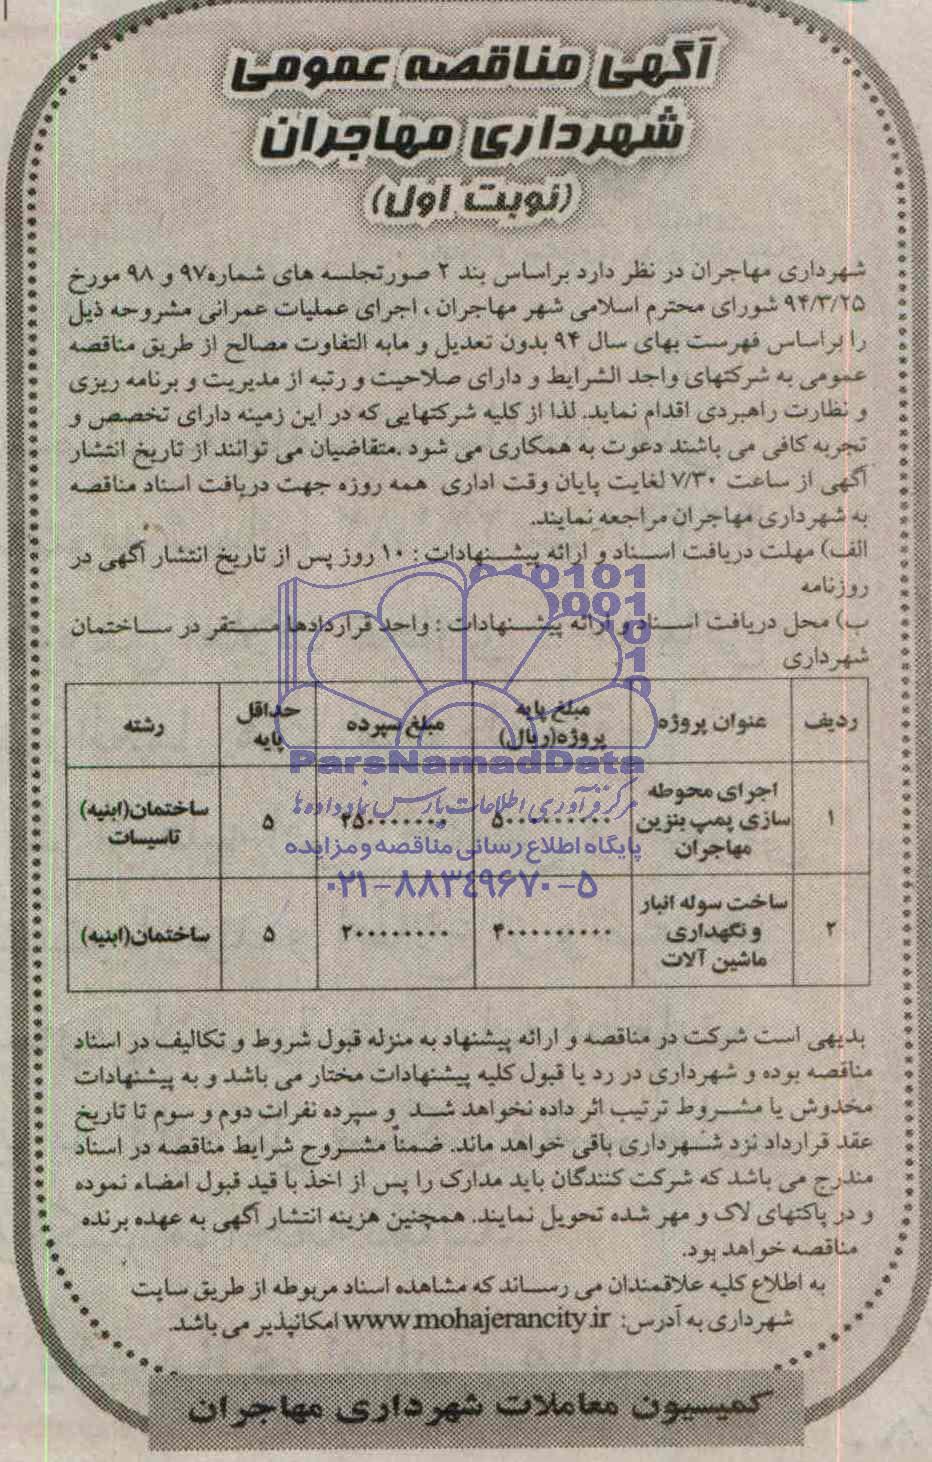 آگهی مناقصه عمومی
شهرداری مهاجران
(نوبت اول)
شهرداری مهاجران در نظر دارد براساس بند ۲ صورتجلسه های شماره۹۷ و ۹۸ مورخ
۹۴/۳/۲۵ شورای محترم اسلامی شهر مهاجران ، اجرای عملیات عمرانی مشروحه ذیل
را براساس فهرست بهای سال ۹۴ بدون تعدیل و مابه التفاوت مصالح از طریق مناقصه
عمومی به شرکتهای واجد الشرایط و دارای صلاحیت و رتبه از مدیریت و برنامه ریزی
و نظارت راهبردی اقدام نماید. لذا از کلیه شرکتهایی که در این زمینه دارای تخصص و
تجربه کافی می باشند دعوت به همکاری می شود .متقاضیان می توانند از تاریخ انتشار
آگهی از ساعت ۷/۳۰ لغایت پایان وقت اداری همه روزه جهت دریافت اسناد مناقصه
به شهرداری مهاجران مراجعه نمایند.
الف) مهلت دریافت اسناد و ارائه پیشنهادات : ۱۰ روز پس از تاریخ انتشار آگهی در
روزنامه
ب) محل دریافت اسناد و ارائه پیشنهادات : واحد قراردادها مستقر در ساختمان
شهرداری
ردیف عنوان پروژه مبلغ پایه پروژه(ریال) مبلغ سپرده حداقل پایه رشته
۱ اجرای محوطه سازی پمپ بنزین مهاجران ۵۰۰۰۰۰۰۰۰۰ ۲۵۰۰۰۰۰۰۰ ۵ ساختمان(ابنیه) تاسیسات
۲ ساخت سوله انبار و نگهداری ماشین آلات ۴۰۰۰۰۰۰۰۰۰ ۲۰۰۰۰۰۰۰۰ ۵ ساختمان(ابنیه)
ParsNamadData
مرکز فرآوری اطلاعات پارس نماد داده ها
پایگاه اطلاع رسانی مناقصه و مزایده
۰۲۱-۸۸۳۴۹۶۷۰-۵
بدیهی است شرکت در مناقصه و ارائه پیشنهاد به منزله قبول شروط و تکالیف در اسناد
مناقصه بوده و شهرداری در رد یا قبول کلیه پیشنهادات مختار می باشد و به پیشنهادات
مخدوش یا مشروط ترتیب اثر داده نخواهد شد و سپرده نفرات دوم و سوم تا تاریخ
عقد قرارداد نزد شهرداری باقی خواهد ماند. ضمناً مشروح شرایط مناقصه در اسناد
مندرج می باشد که شرکت کنندگان باید مدارک را پس از اخذ با قید قبول امضاء نموده
و در پاکتهای لاک و مهر شده تحویل نمایند. همچنین هزینه انتشار آگهی به عهده برنده
مناقصه خواهد بود.
به اطلاع کلیه علاقمندان می رساند که مشاهده اسناد مربوطه از طریق سایت
شهرداری به آدرس: www.mohajerancity.ir امکانپذیر می باشد.
کمیسیون معاملات شهرداری مهاجران